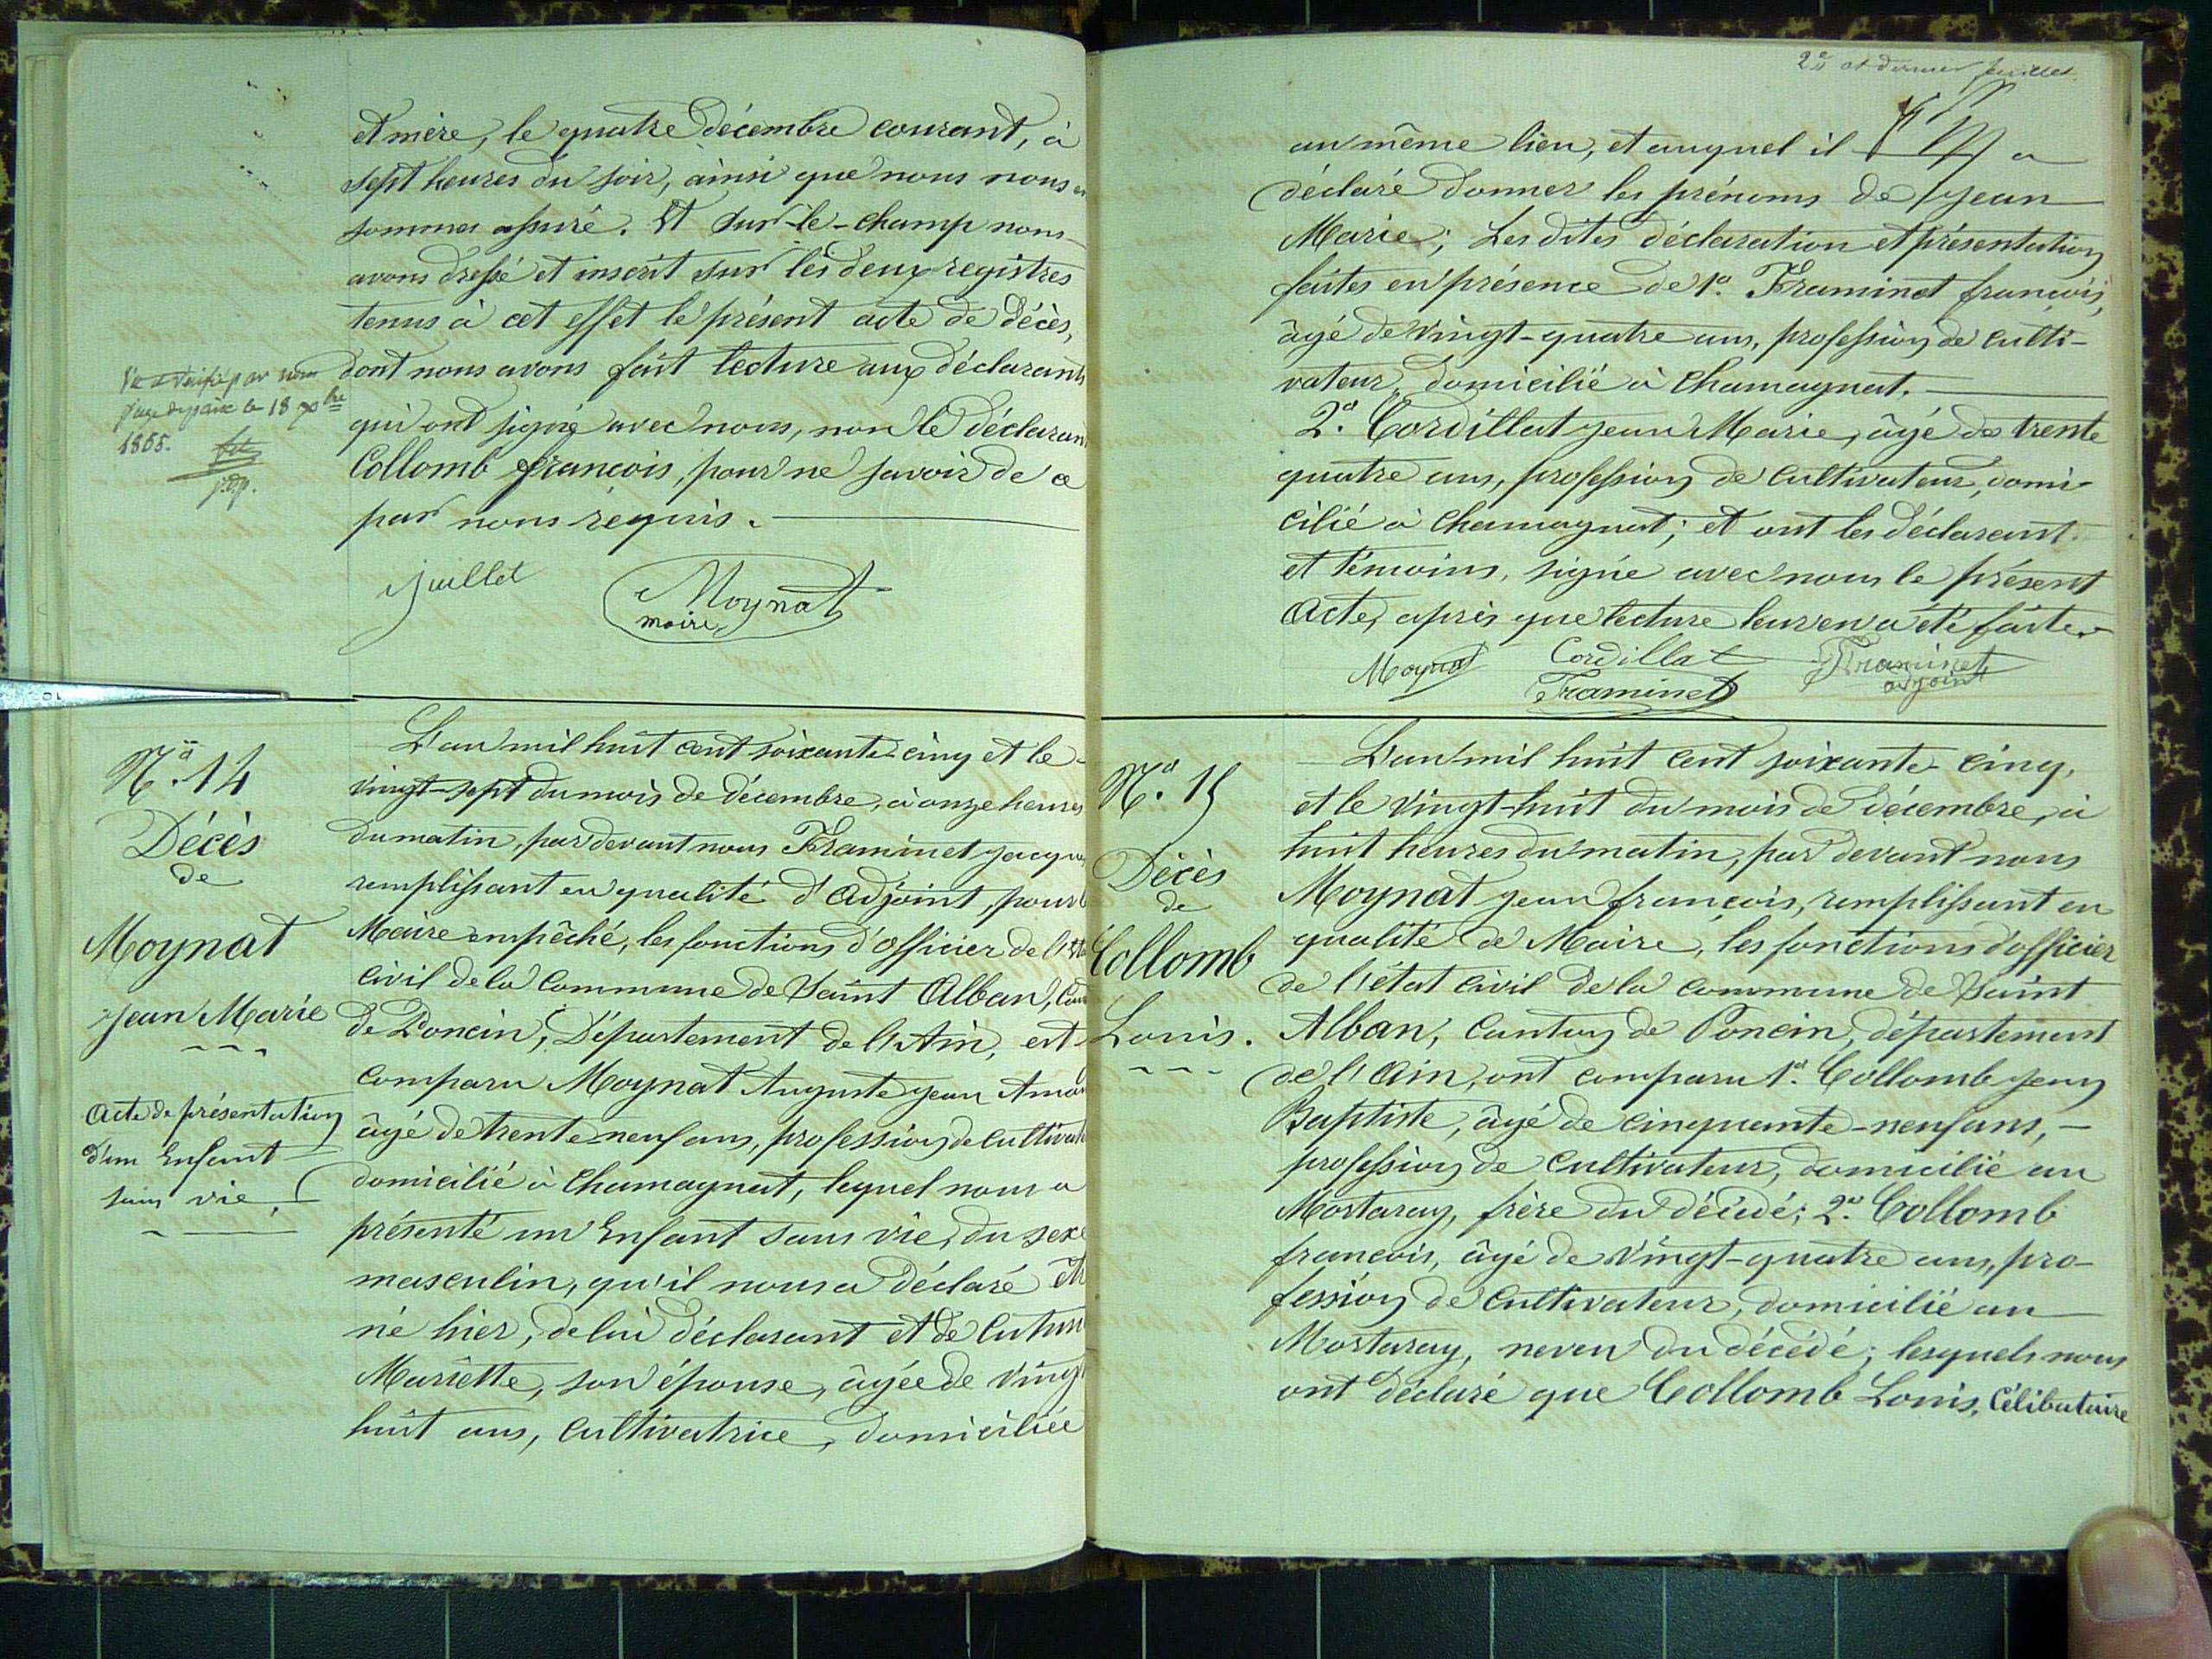 et mère, le quatre décembre courant, à
sept heures du soir, ainsi que nous nous en
sommes assuré. Et sur-le-champ nous
avons dressé et inscrit sur les deux registres
tenus à cet effet le présent acte de décès,
dont nous avons fait lecture aux déclarants
qui ont signé avec nous, non le déclarant
Collomb françois, pour ne savoir de ce
par nous requis.
Vu et vérifié par nous
juge de paix le 18 xbre
1865.
j.d.p.
Juillet
Moynat
maire
No. 14
Décès
de
Moynat
Jean Marie
Acte de présentation
d'un Enfant
sans vie.
L'an mil huit cent soixante-cinq et le
vingt-sept du mois de décembre, à onze heures
du matin, par devant nous Framinet Jacques
remplissant en qualité d'adjoint, pour l
Maire empêché, les fonctions d'officier de l'éta
civil de la commune de Saint Alban, Can
de Poncin, Département de l'Ain, est
comparu Moynat Auguste Jean
âgé de trente neuf ans, profession de cultivate
domicilié à Chamagnat, lequel nous a
présenté un Enfant sans vie, du sexe
masculin, qu'il nous a déclaré êtr
né hier, de lui déclarant et de
Mariette, son épouse, âgée de vingt
huit ans, cultivatrice, domiciliée
2e et dernier feuillet
au même lieu, et auquel il a
déclaré donner les prénoms de Jean
Marie; Les dites déclaration et présentation
faites en présence de 1o. Framinet françois,
âgé de vingt-quatre ans, profession de culti-
vateur, domicilié à Chamagnat.
2o. Cordillat Jean Marie, âgé de trente
quatre ans, profession de cultivateur, domi-
cilié à Chamagnat; et ont les déclarant
et témoins, signé avec nous le présent
Acte, après que lecture leur en a été faite.
Moynat Cordillat Framinet
Framinet adjoint
No. 15
Décès
de
Collomb
Louis.
L'an mil huit cent soixante-cinq,
et le vingt-huit du mois de décembre, à
huit heures du matin, par devant nous
Moynat Jean françois, remplissant en
qualité de Maire, les fonctions d'officier
de l'état civil de la commune de Saint
Alban, Canton de Poncin, département
de l'Ain, ont comparu 1o. Collomb Jean
Baptiste, âgé de cinquante-neuf ans, —
profession de cultivateur, domicilié au
Mortaray, frère du décédé; 2o. Collomb
françois, âgé de vingt-quatre ans, pro-
fession de cultivateur, domicilié au
Mortaray, neveu du décédé; lesquels nous
ont déclaré que Collomb Louis, Célibataire